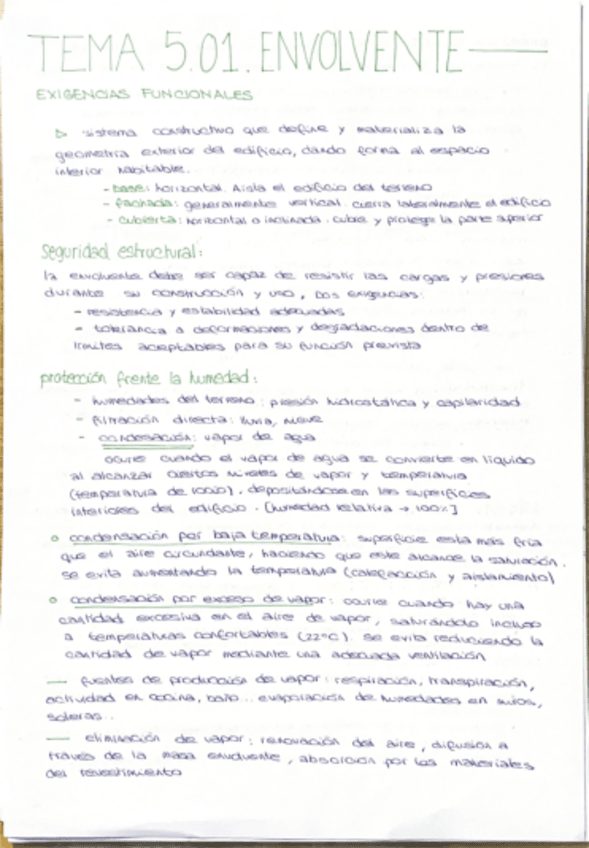 TEMA 5.01. ENVOLVENTE
EXIGENCIAS FUNCIONALES
▷ sistema constructivo que define y materializa la
geometría exterior del edificio, dando forma al espacio
interior habitable.
- base: horizontal. Aisla el edificio del terreno
- fachada: generalmente vertical. cierra lateralmente el edificio
- cubierta: horizontal o inclinada. cubre y protege la parte superior
Seguridad estructural:
la envolvente debe ser capaz de resistir las cargas y presiones
durante su construcción y uso, Dos exigencias:
- resistencia y estabilidad adecuadas
- tolerancia a deformaciones y degradaciones dentro de
límites aceptables para su función prevista
protección frente la humedad:
- humedades del terreno: presión hidrostática y capilaridad
- filtración directa: lluvia, nieve
- condensación: vapor de agua
ocurre cuando el vapor de agua se convierte en líquido
al alcanzar ciertos niveles de vapor y temperatura
(temperatura de rocío), depositándose en las superficies
interiores del edificio. [humedad relativa → 100%]
○ condensación por baja temperatura: superficie esta más fría
que el aire circundante, haciendo que este alcance la saturación.
se evita aumentando la temperatura (calefacción y aislamiento)
○ condensación por exceso de vapor: ocurre cuando hay una
cantidad excesiva en el aire de vapor, saturándolo incluso
a temperaturas confortables (22ºC). se evita reduciendo la
cantidad de vapor mediante una adecuada ventilación
— fuentes de producción de vapor: respiración, transpiración,
actividad en cocina, baño... evaporación de humedades en muros,
soleras..
— eliminación de vapor: renovación del aire, difusión a
través de la masa envolvente, absorción por los materiales
del revestimiento